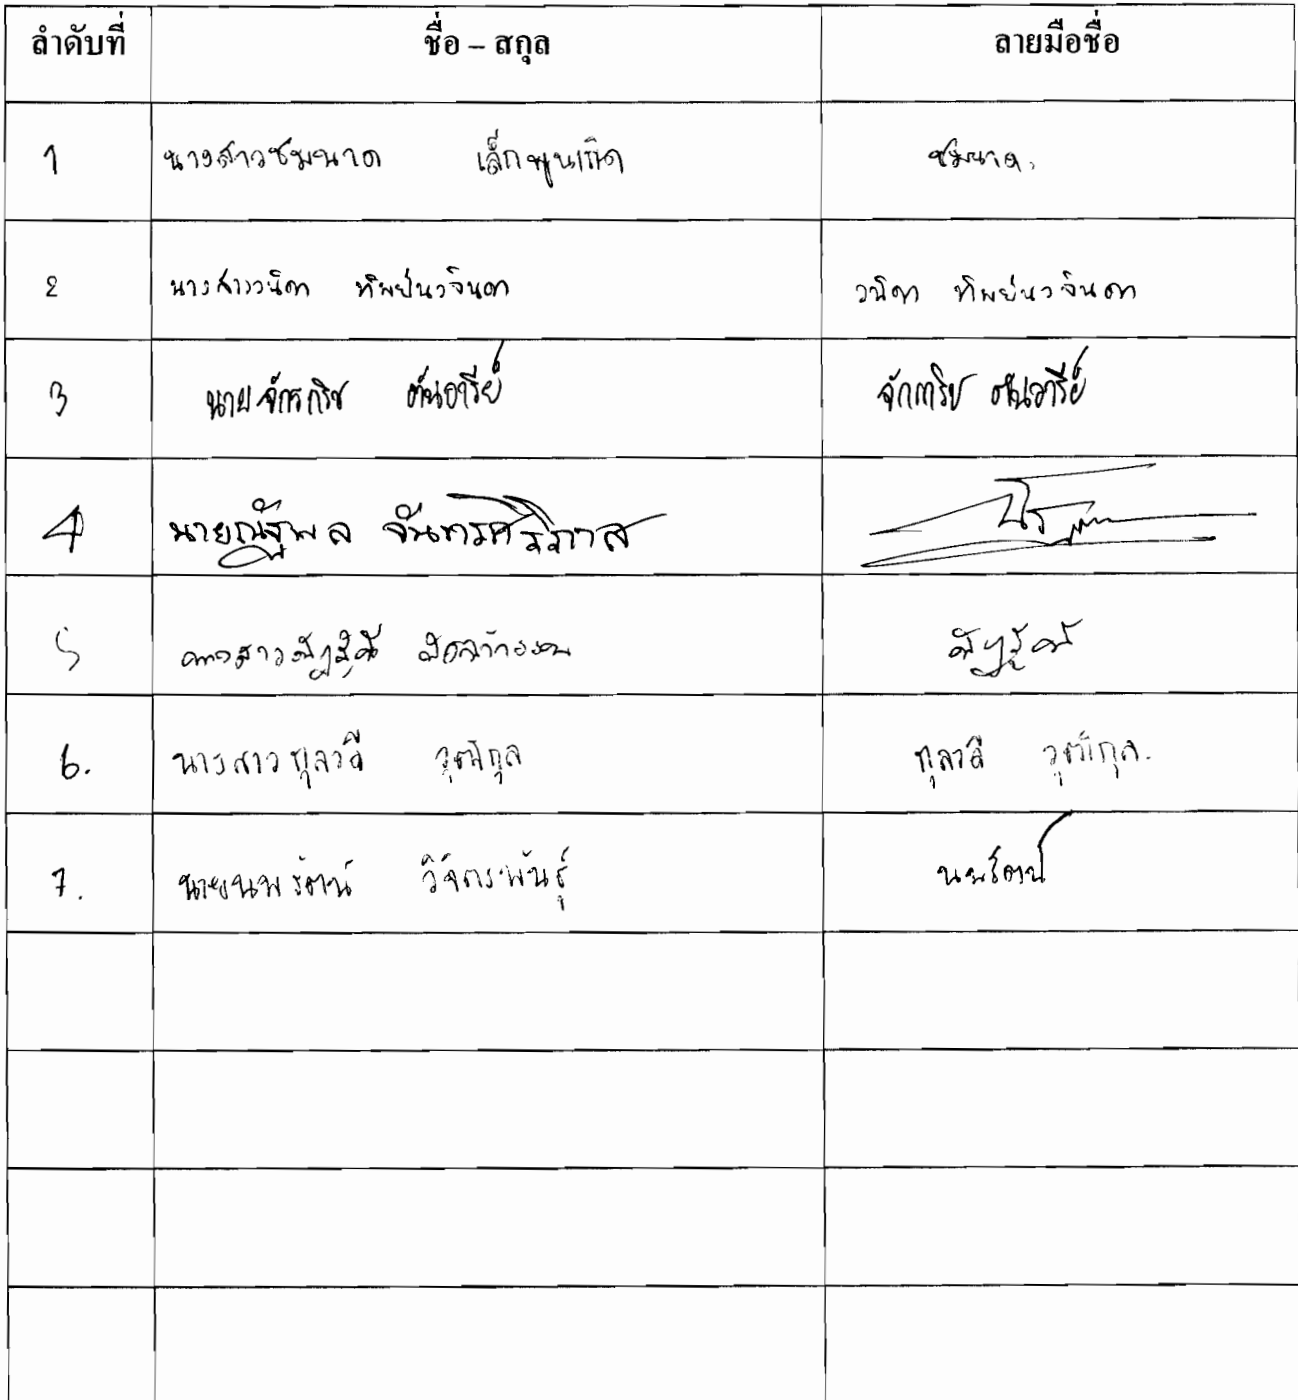 ลำดับที่ ชื่อ – สกุล ลายมือชื่อ
1 นางสาวชมนาด เล็กพูนเกิด ชมนาด.
2 นางสาววนิดา ทิพย์นวจินดา วนิดา ทิพย์นวจินดา
3 นายจักรกริช ตันอารีย์ จักรกริช ตันอารีย์
4 นายณัฐพล จันทรศิริภาส
5
6. นางสาวกุลวลี วุฒิกุล กุลวลี วุฒิกุล.
7. นายนพรัตน์ วิจิตรพันธุ์ นพรัตน์